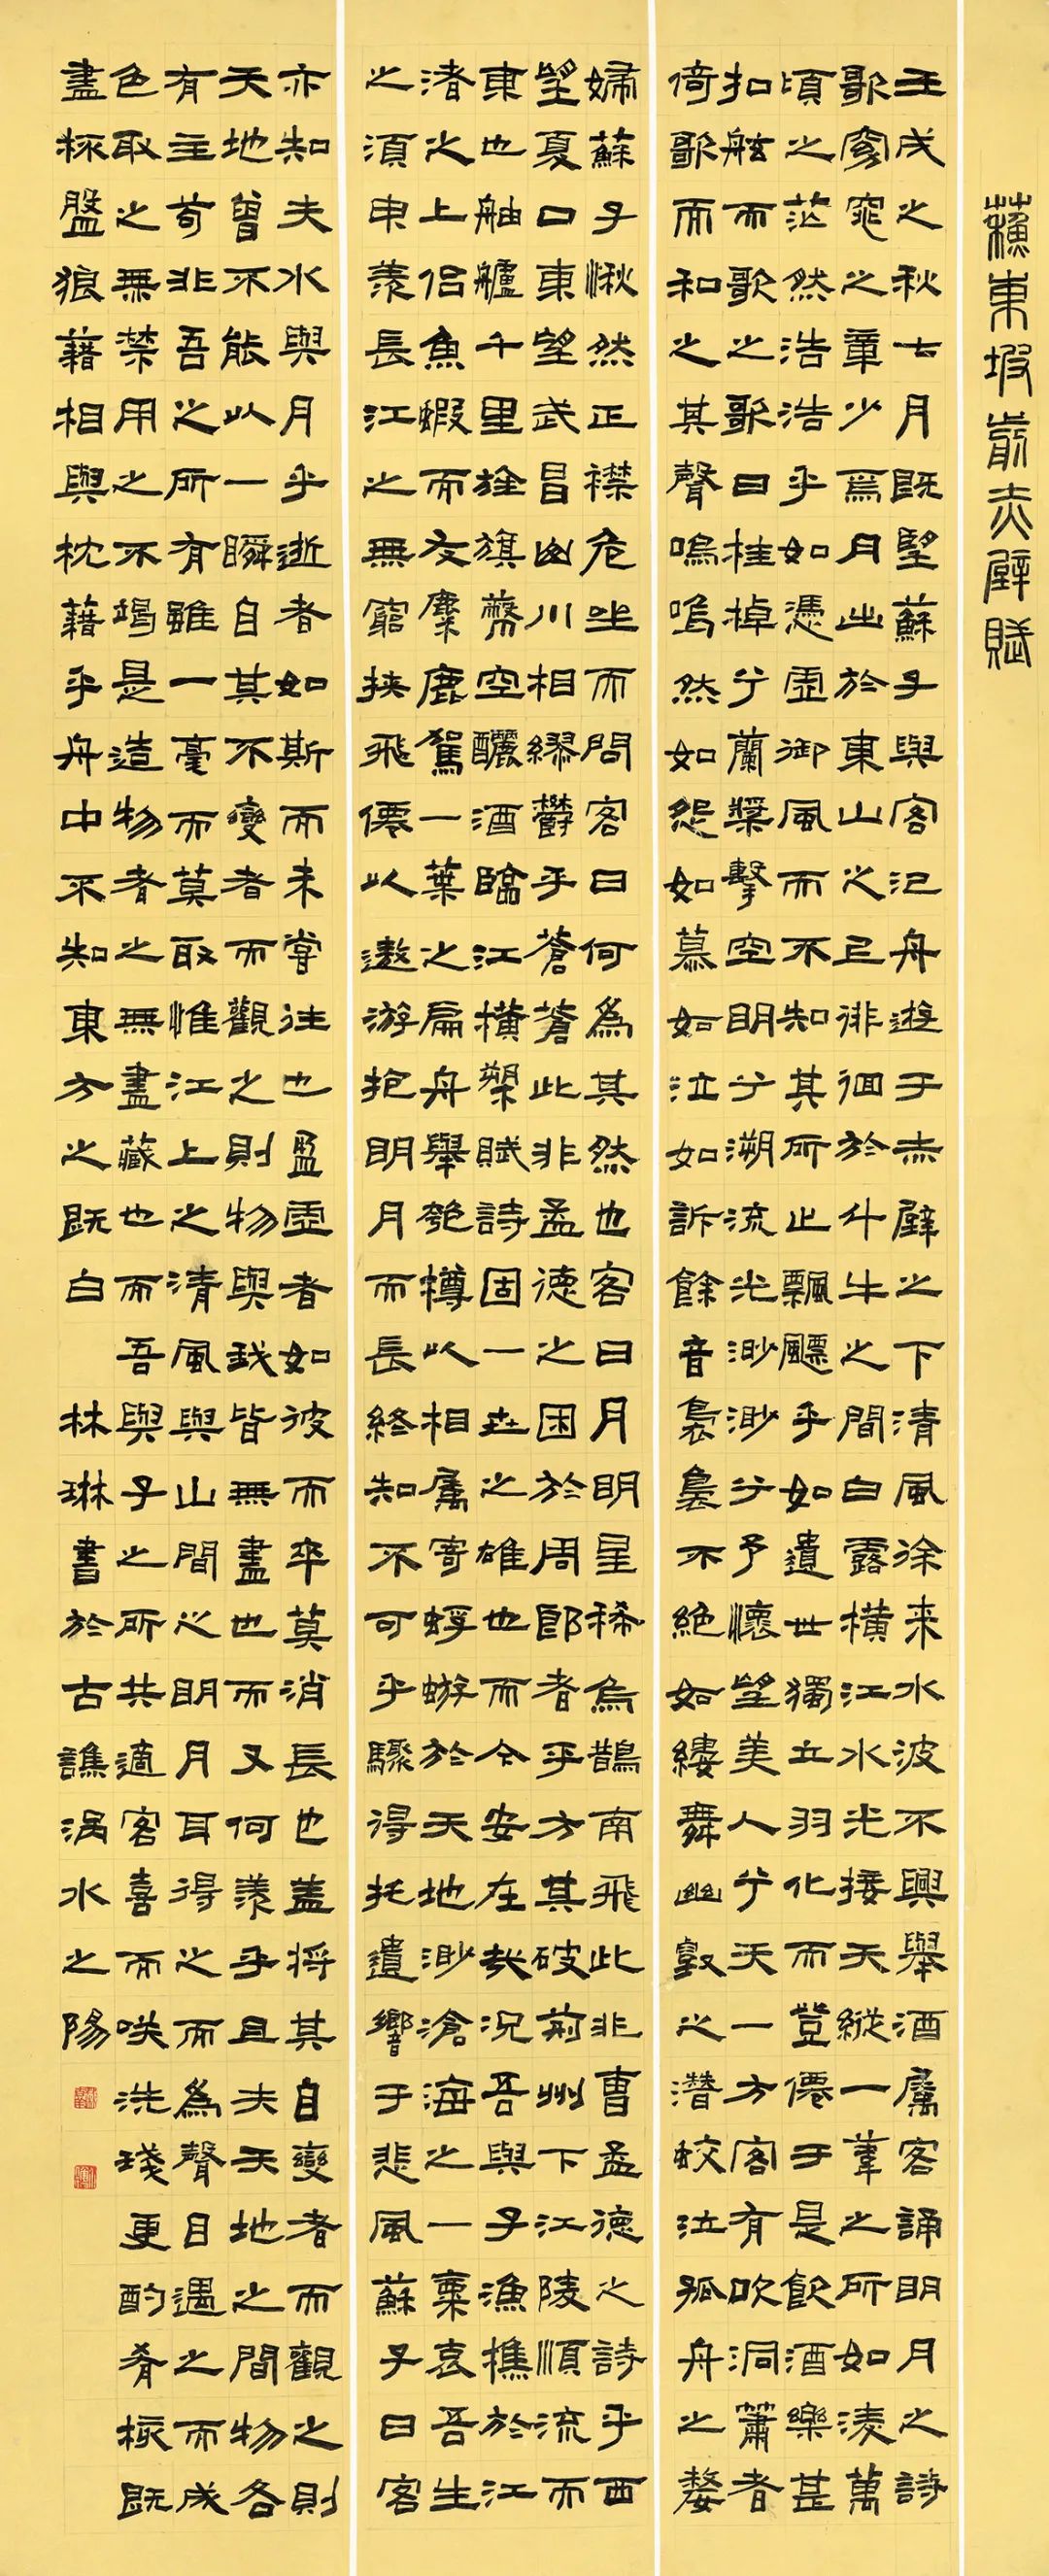 蘇東坡前赤壁賦
壬戌之秋七月既望蘇子與客汜舟遊于赤壁之下清風徐来水波不興舉酒屬客誦明月之詩
歌窈窕之章少焉月出於東山之上徘徊於斗牛之間白露橫江水光接天縱一葦之所如淩萬
頃之茫然浩浩乎如憑虛御風而不知其所止飄飄乎如遺世獨立羽化而登僊于是飲酒樂甚
扣舷而歌之歌曰桂棹兮蘭槳擊空明兮溯流光渺渺兮予懷望美人兮天一方客有吹洞簫者
倚歌而和之其聲嗚嗚然如怨如慕如泣如訴餘音裊裊不絕如縷舞幽壑之潛蛟泣孤舟之嫠
婦蘇子愀然正襟危坐而問客曰何為其然也客曰月明星稀烏鵲南飛此非曹孟德之詩乎西
望夏口東望武昌山川相繆鬱乎蒼蒼此非孟德之困於周郎者乎方其破荊州下江陵順流而
東也舳艫千里旌旗蔽空釃酒臨江橫槊賦詩固一世之雄也而今安在哉況吾與子漁樵於江
渚之上侶魚蝦而友麋鹿駕一葉之扁舟舉匏樽以相屬寄蜉蝣於天地渺滄海之一粟哀吾生
之須臾羨長江之無窮挾飛僊以遨游抱明月而長終知不可乎驟得托遺響于悲風蘇子曰客
亦知夫水與月乎逝者如斯而未嘗往也盈虛者如彼而卒莫消長也盖將其自變者而觀之則
天地曾不能以一瞬自其不變者而觀之則物與我皆無盡也而又何羨乎且夫天地之間物各
有主苟非吾之所有雖一毫而莫取惟江上之清風與山間之明月耳得之而為聲目遇之而成
色取之無禁用之不竭是造物者之無盡藏也而吾與子之所共適客喜而笑洗盞更酌肴核既
盡杯盤狼藉相與枕藉乎舟中不知東方之既白 林琳書於古譙渦水之陽